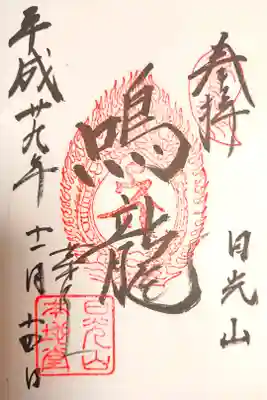 奉拝
日光山
鳴龍
本地堂
平成廿九年十一月十四日
日光山
本地堂